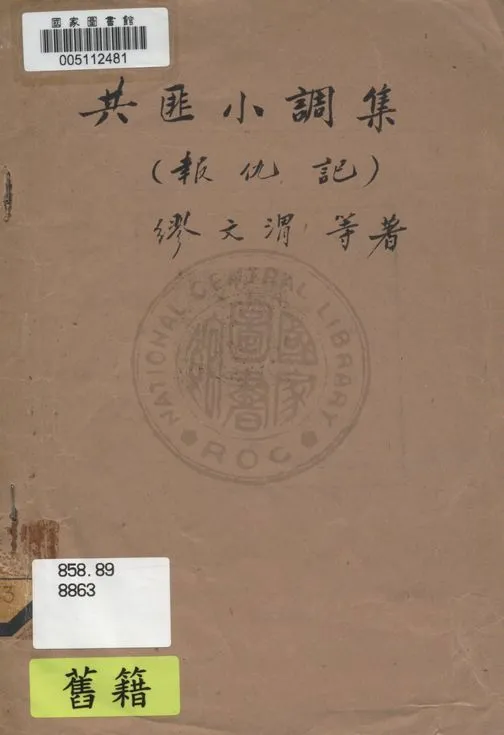 國家圖書館
005112481
共匪小調集
(報仇記)
繆文渭等著
NATIONAL CENTRAL LIBRARY
國家圖書館
ROC
858.89
8863
3
舊籍